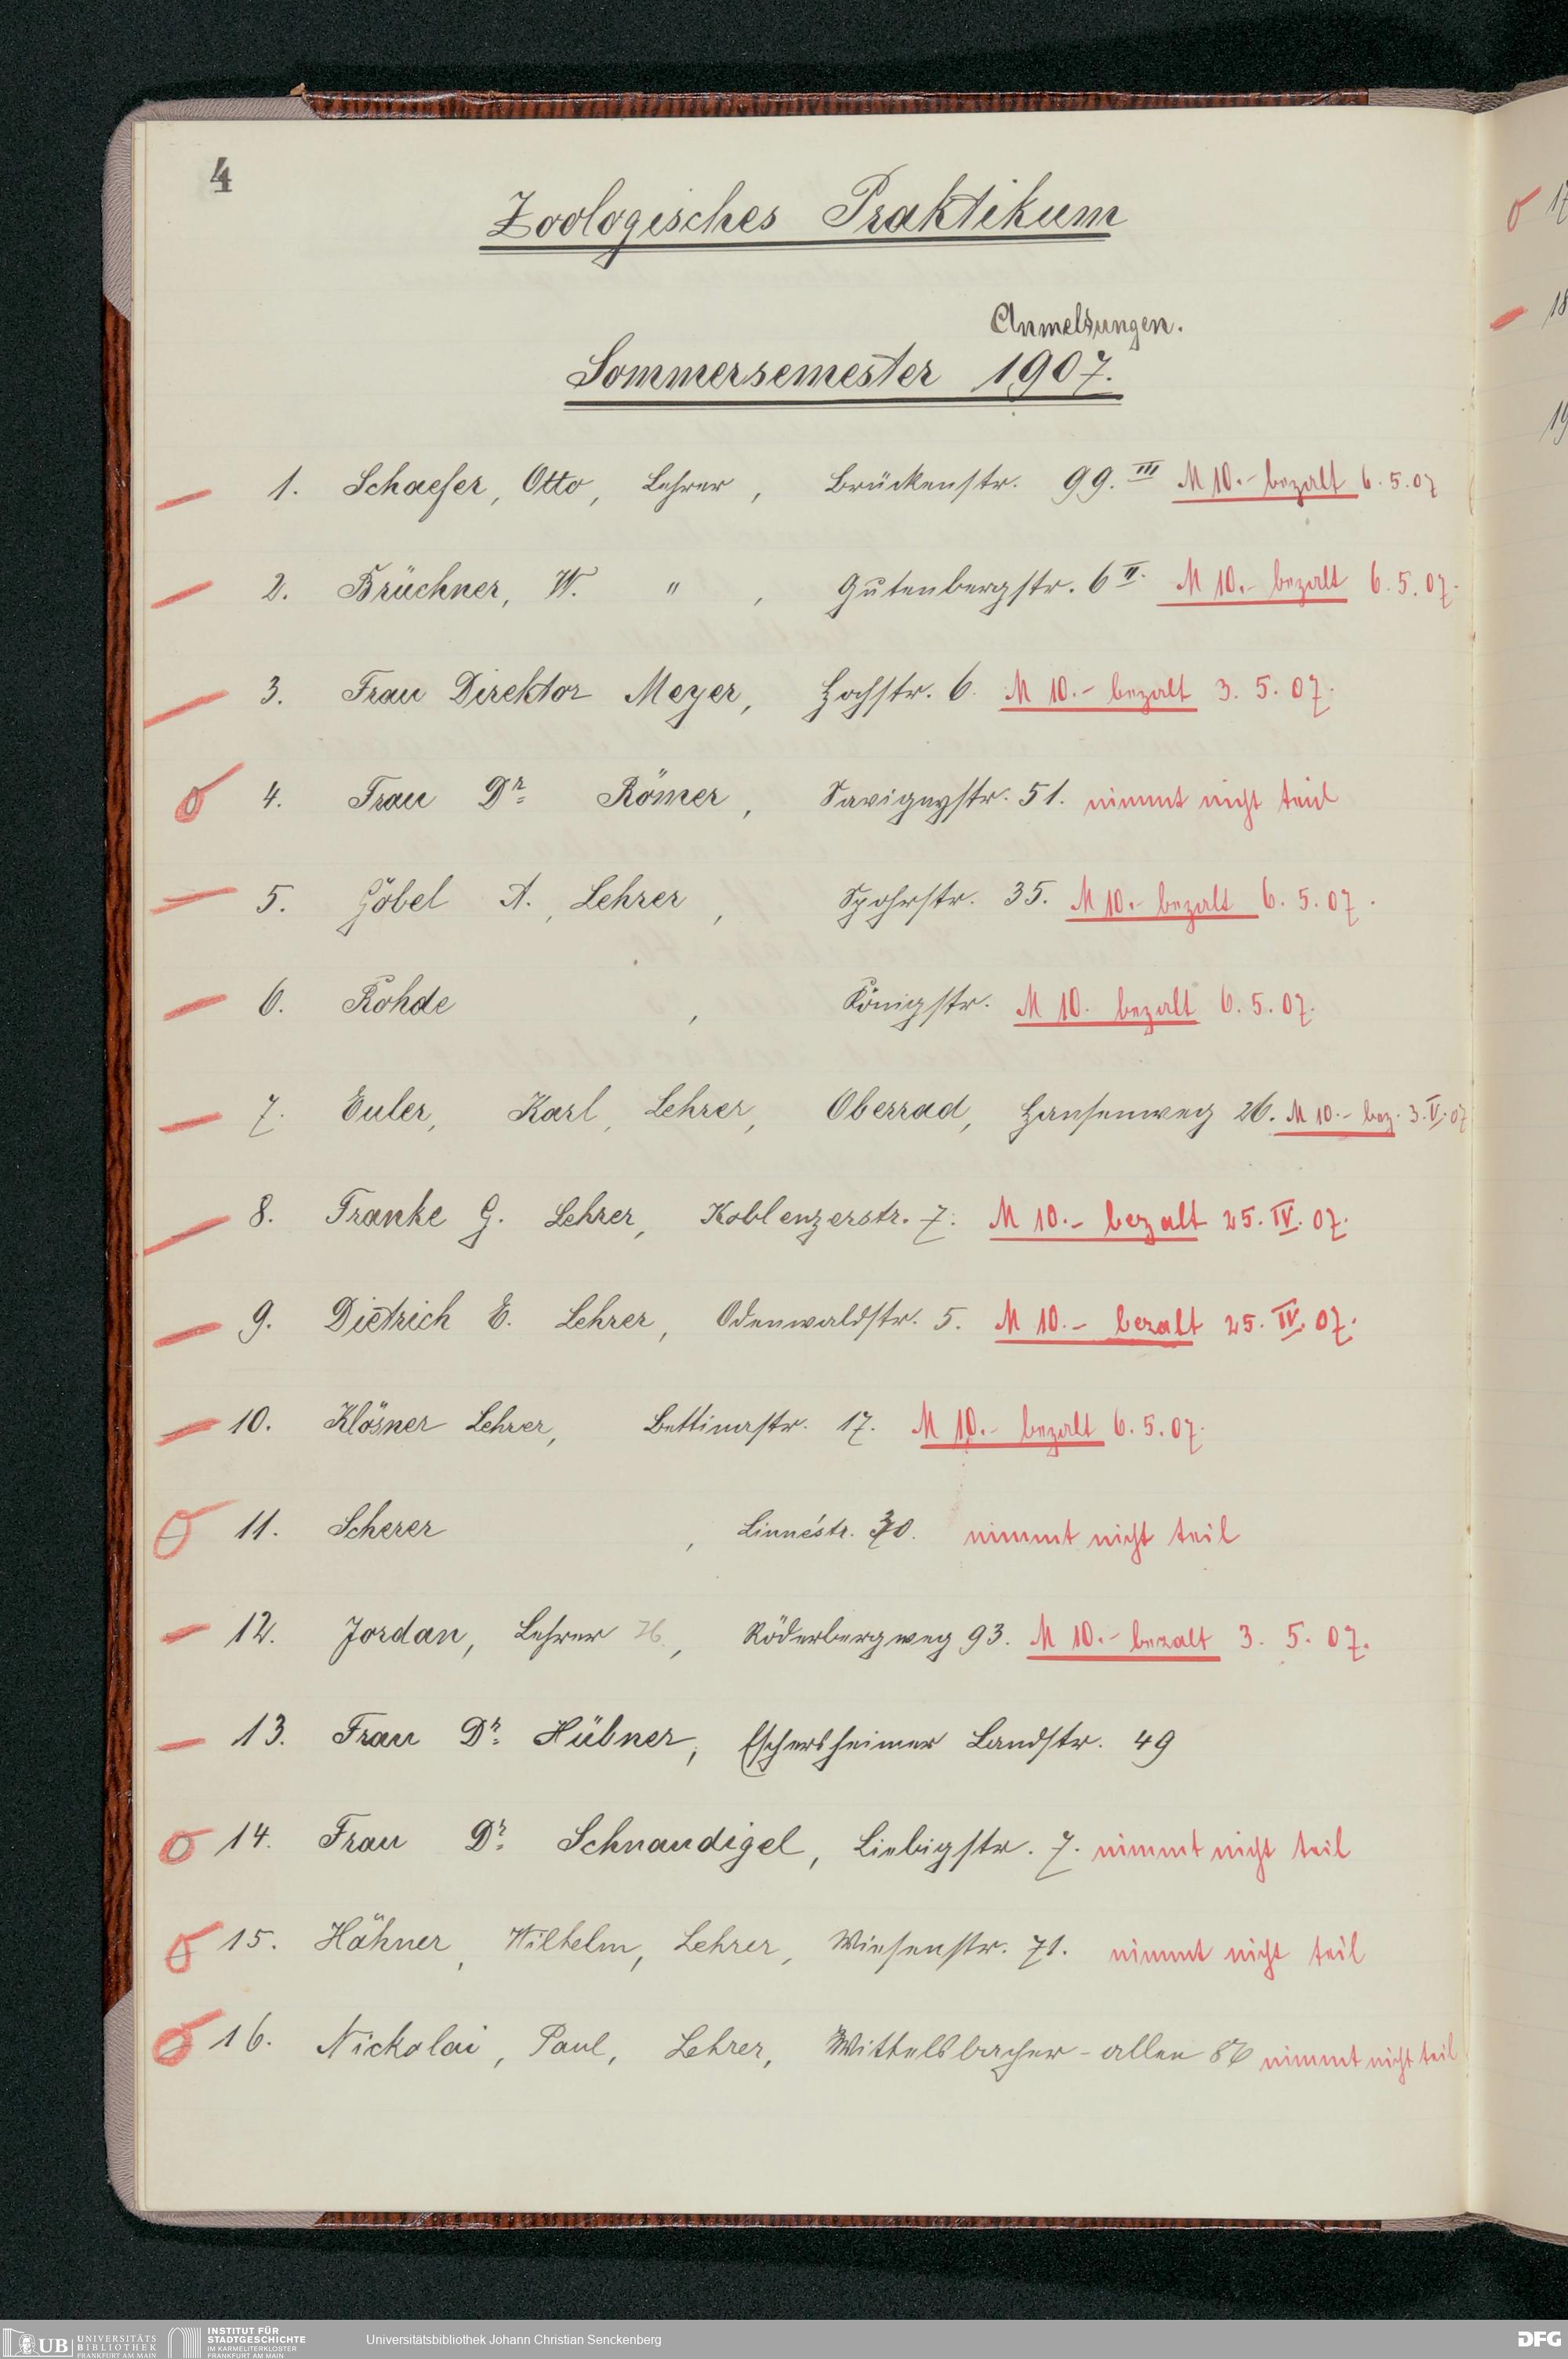 4
Zoologisches Praktikum
Anmeldungen.
Sommersemester 1907.
1. Schaefer, Otto, Lehrer, Brückenstr. 99. III M 10.- bezalt 6.5.07
2. Brückner, W. " , Gutenbergstr. 6 II. M 10.- bezalt 6.5.07.
3. Frau Direktor Meyer, Hochstr. 6. M 10.- bezalt 3.5.07.
4. Frau Dr. Römer, Savignystr. 51. nimmt nicht teil
5. Göbel A., Lehrer, Spohrstr. 35. M 10.- bezalt 6.5.07.
6. Rohde , Königstr. M 10. bezalt 6.5.07.
7. Euler, Karl, Lehrer, Oberrad, Hansenweg 26. M 10.- bez. 3.V.07
8. Franke G. Lehrer, Koblenzerstr. 7. M 10.- bezalt 25.IV.07.
9. Dietrich E. Lehrer, Odenwaldstr. 5. M 10.- bezalt 25.IV.07.
10. Klösner Lehrer, Bettinastr. 17. M 10.- bezalt 6.5.07.
11. Scherer , Linnéstr. 30. nimmt nicht teil
12. Jordan, Lehrer H., Röderbergweg 93. M 10.- bezalt 3.5.07.
13. Frau Dr. Hübner, Eschersheimer Landstr. 49
14. Frau Dr. Schnaudigel, Liebigstr. 7. nimmt nicht teil
15. Hähner, Wilhelm, Lehrer, Wiesenstr. 71. nimmt nicht teil
16. Nickolai, Paul, Lehrer, Wittelsbacher-allee 86 nimmt nicht teil
17
18
19
UB UNIVERSITÄTS BIBLIOTHEK FRANKFURT AM MAIN
INSTITUT FÜR STADTGESCHICHTE IM KARMELITERKLOSTER FRANKFURT AM MAIN
Universitätsbibliothek Johann Christian Senckenberg
DFG